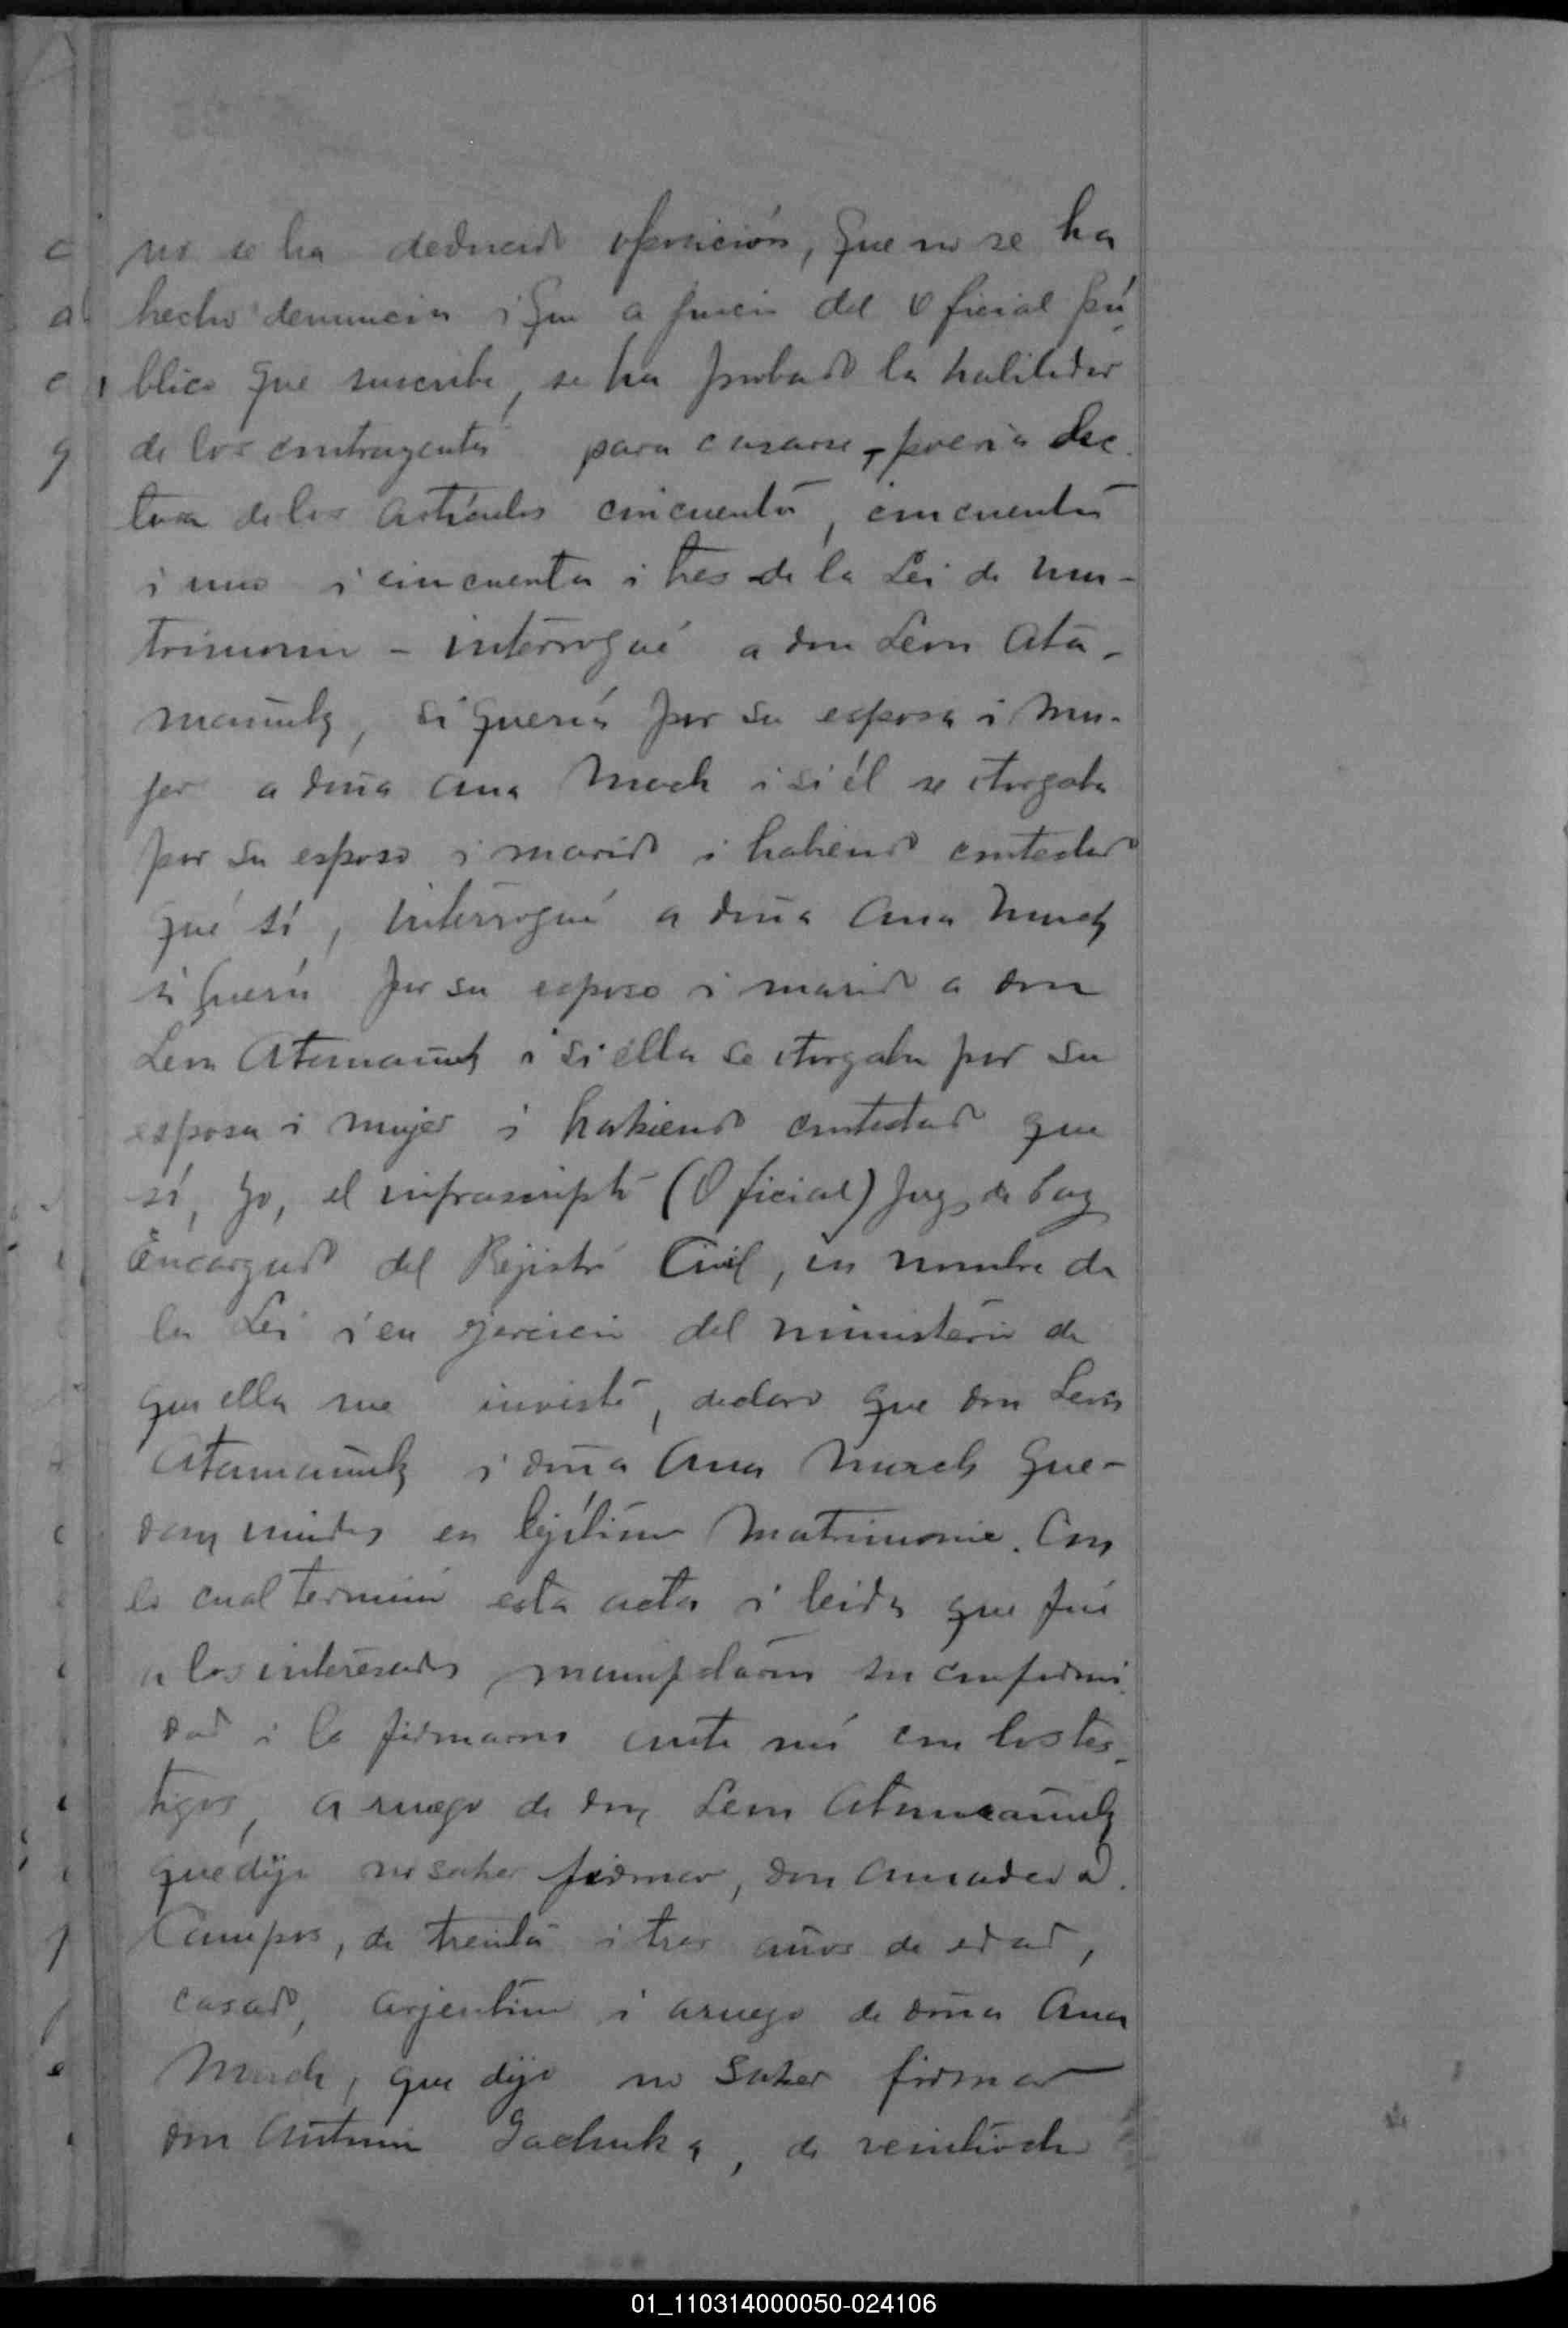 no se ha deducido oposición, que no se ha
hecho denuncia i que a juicio del Oficial pú
blico que suscribe, se ha probado la habilidad
de los contrayentes para casarse, previa lec
tura de los artículos cincuenta, cincuenta
i uno i cincuenta i tres de la Lei de ma-
trimonio - interrogué a don Leon Ata-
mañuk, si quería por su esposa i mu-
jer a doña Ana Much i si él se otorgaba
por su esposo i marido i habiendo contestado
que sí, interrogué a doña Ana Much
si quería por su esposo i marido a don
Leon Atamañuk i si ella se otorgaba por su
esposa i mujer i habiendo contestado que
sí, yo, el infrascripto (Oficial) Juez de Paz
Encargado del Rejistro Civil, en nombre de
la Lei i en ejercicio del ministerio de
que ella me inviste, declaro que don Leon
Atamañuk i doña Ana Much que-
dan unidos en lejítimo matrimonio. Con
lo cual terminó esta acta i leida que fué
a los interesados manifestaron su conformi
dad i la firmaron ante mí con los tes-
tigos, a ruego de don Leon Atamañuk
que dijo no saber firmar, don Amadeo D.
Campos, de treinta i tres años de edad,
casado, arjentino i a ruego de doña Ana
Much, que dijo no saber firmar
don Antonio Gachuka, de veintiocho
01_110314000050-024106